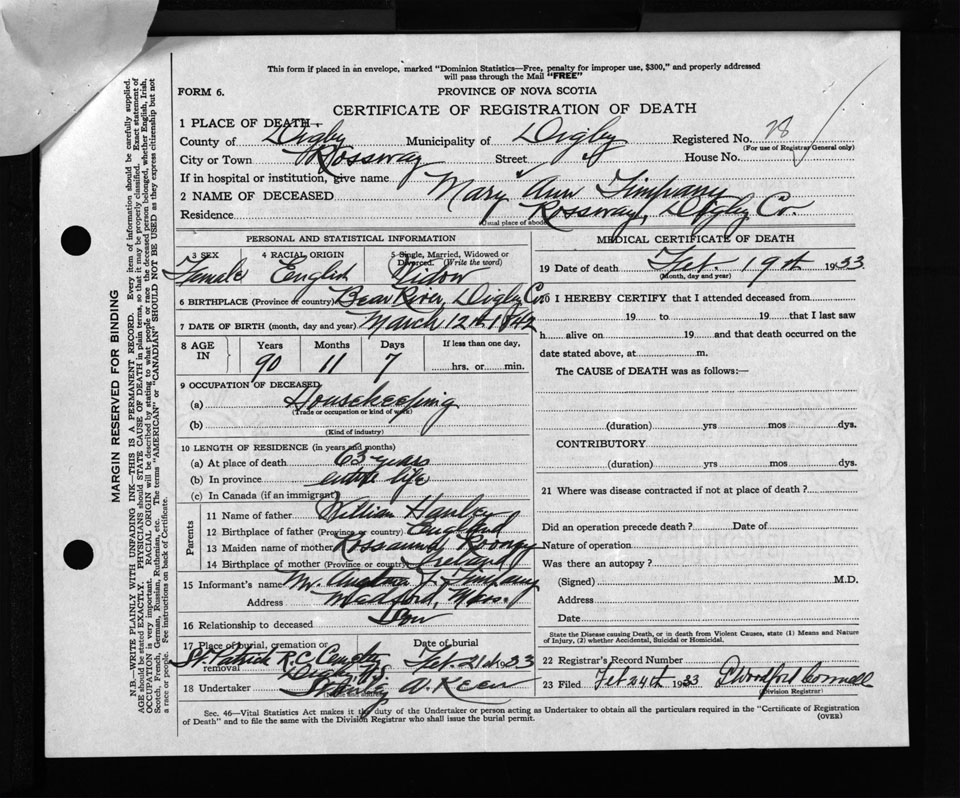 This form if placed in an envelope, marked "Dominion Statistics—Free, penalty for improper use, $300," and properly addressed
will pass through the Mail "FREE"
FORM 6.
PROVINCE OF NOVA SCOTIA
CERTIFICATE OF REGISTRATION OF DEATH
1 PLACE OF DEATH
County of Digby Municipality of Digby Registered No. 78
(For use of Registrar General only)
City or Town Rossway Street House No.
If in hospital or institution, give name
2 NAME OF DECEASED Mary Ann Timpany
Residence Rossway, Digby Co.
(Usual place of abode)
PERSONAL AND STATISTICAL INFORMATION
3 SEX 4 RACIAL ORIGIN 5 Single, Married, Widowed or
Divorced. (Write the word)
Female English Widow
6 BIRTHPLACE (Province or country) Bear River, Digby Co.
7 DATE OF BIRTH (month, day and year) March 12th 1842
8 AGE IN Years Months Days If less than one day,
90 11 7 hrs. or min.
9 OCCUPATION OF DECEASED
(a) Housekeeping
(Trade or occupation or kind of work)
(b)
(Kind of industry)
10 LENGTH OF RESIDENCE (in years and months)
(a) At place of death 63 years
(b) In province entire life
(c) In Canada (if an immigrant)
Parents
11 Name of father William
12 Birthplace of father (Province or country) England
13 Maiden name of mother Rosanna
14 Birthplace of mother (Province or country) Ireland
15 Informant's name Mr. J. Timpany
Address Medford, Mass.
16 Relationship to deceased Son
17 Place of burial, cremation or removal Date of burial
St. Patrick R.C. Digby Feb. 21st 1933
18 Undertaker A. Keen
MEDICAL CERTIFICATE OF DEATH
19 Date of death Feb. 19th 1933
(Month, day and year)
20 I HEREBY CERTIFY that I attended deceased from
19 to 19 that I last saw
h alive on 19 and that death occurred on the
date stated above, at m.
The CAUSE of DEATH was as follows:—
(duration) yrs mos dys.
CONTRIBUTORY
(duration) yrs mos dys.
21 Where was disease contracted if not at place of death?
Did an operation precede death? Date of
Nature of operation
Was there an autopsy?
(Signed) M.D.
Address
Date
State the Disease causing Death, or in death from Violent Causes, state (1) Means and Nature
of Injury, (2) whether Accidental, Suicidal or Homicidal.
22 Registrar's Record Number
23 Filed Feb 24th 1933
(Division Registrar)
Sec. 46—Vital Statistics Act makes it the duty of the Undertaker or person acting as Undertaker to obtain all the particulars required in the "Certificate of Registration
of Death" and to file the same with the Division Registrar who shall issue the burial permit.
(OVER)
MARGIN RESERVED FOR BINDING
N.B.—WRITE PLAINLY WITH UNFADING INK—THIS IS A PERMANENT RECORD. Every item of information should be carefully supplied.
AGE should be stated EXACTLY. PHYSICIANS should STATE CAUSE OF DEATH in plain terms, so that it may be properly classified. Exact statement of
OCCUPATION is very important. RACIAL ORIGIN will be described by stating to what people or race the deceased person belonged, whether English, Irish,
Scotch, French, German, Russian, Ruthenian, etc. The terms "AMERICAN" or "CANADIAN" SHOULD NOT BE USED as they express citizenship but not
a race or people. See instructions on back of Certificate.